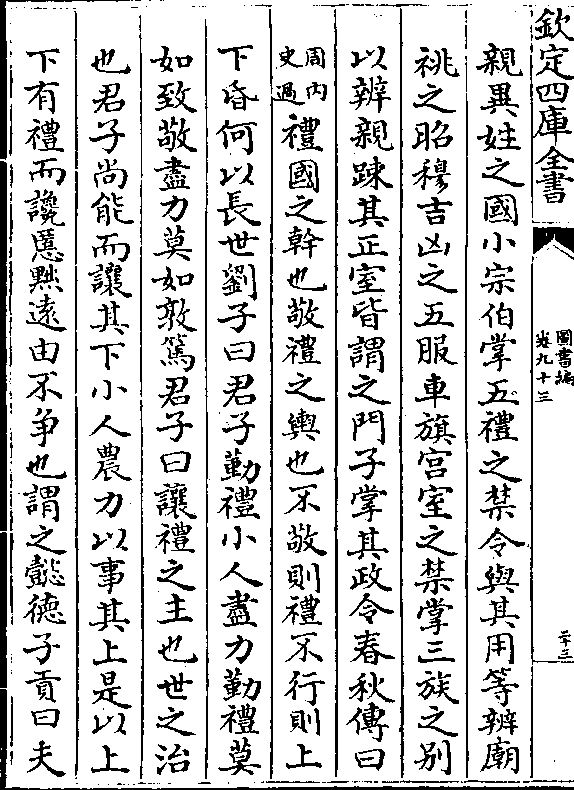 欽定四庫全書
圖書編
卷九十三
二十三
親異姓之國小宗伯掌五禮之禁令與其用等辨廟
祧之昭穆吉凶之五服車旗宫室之禁掌三族之别
以辨親踈其正室皆謂之門子掌其政令春秋傳曰
周内史過禮國之幹也敬禮之輿也不敬則禮不行則上
下昏何以長世劉子曰君子勤禮小人盡力勤禮莫
如致敬盡力莫如敦篤君子曰讓禮之主也世之治
也君子尚能而讓其下小人農力以事其上是以上
下有禮而讒慝黜遠由不争也謂之懿德子貢曰夫